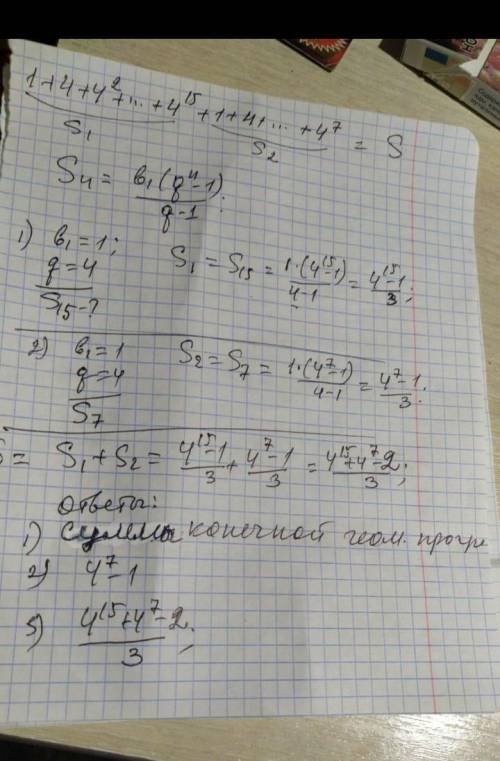 1+4+4²+...+4¹⁵+1+4+...+4⁷ = S
S₁ S₂
Sₙ = b₁(qⁿ-1)/q-1;
1) b₁=1; S₁ = S₁₅ = 1·(4¹⁵-1)/4-1 = 4¹⁵-1/3;
q=4
S₁₅-?
2) b₁=1 S₂=S₇ = 1·(4⁷-1)/4-1 = 4⁷-1/3.
q=4
S₇
S= S₁+S₂ = 4¹⁵-1/3 + 4⁷-1/3 = 4¹⁵+4⁷-2/3;
ответы:
1) суммы конечной геом. прогре
2) 4⁷-1
3) 4¹⁵+4⁷-2/3;